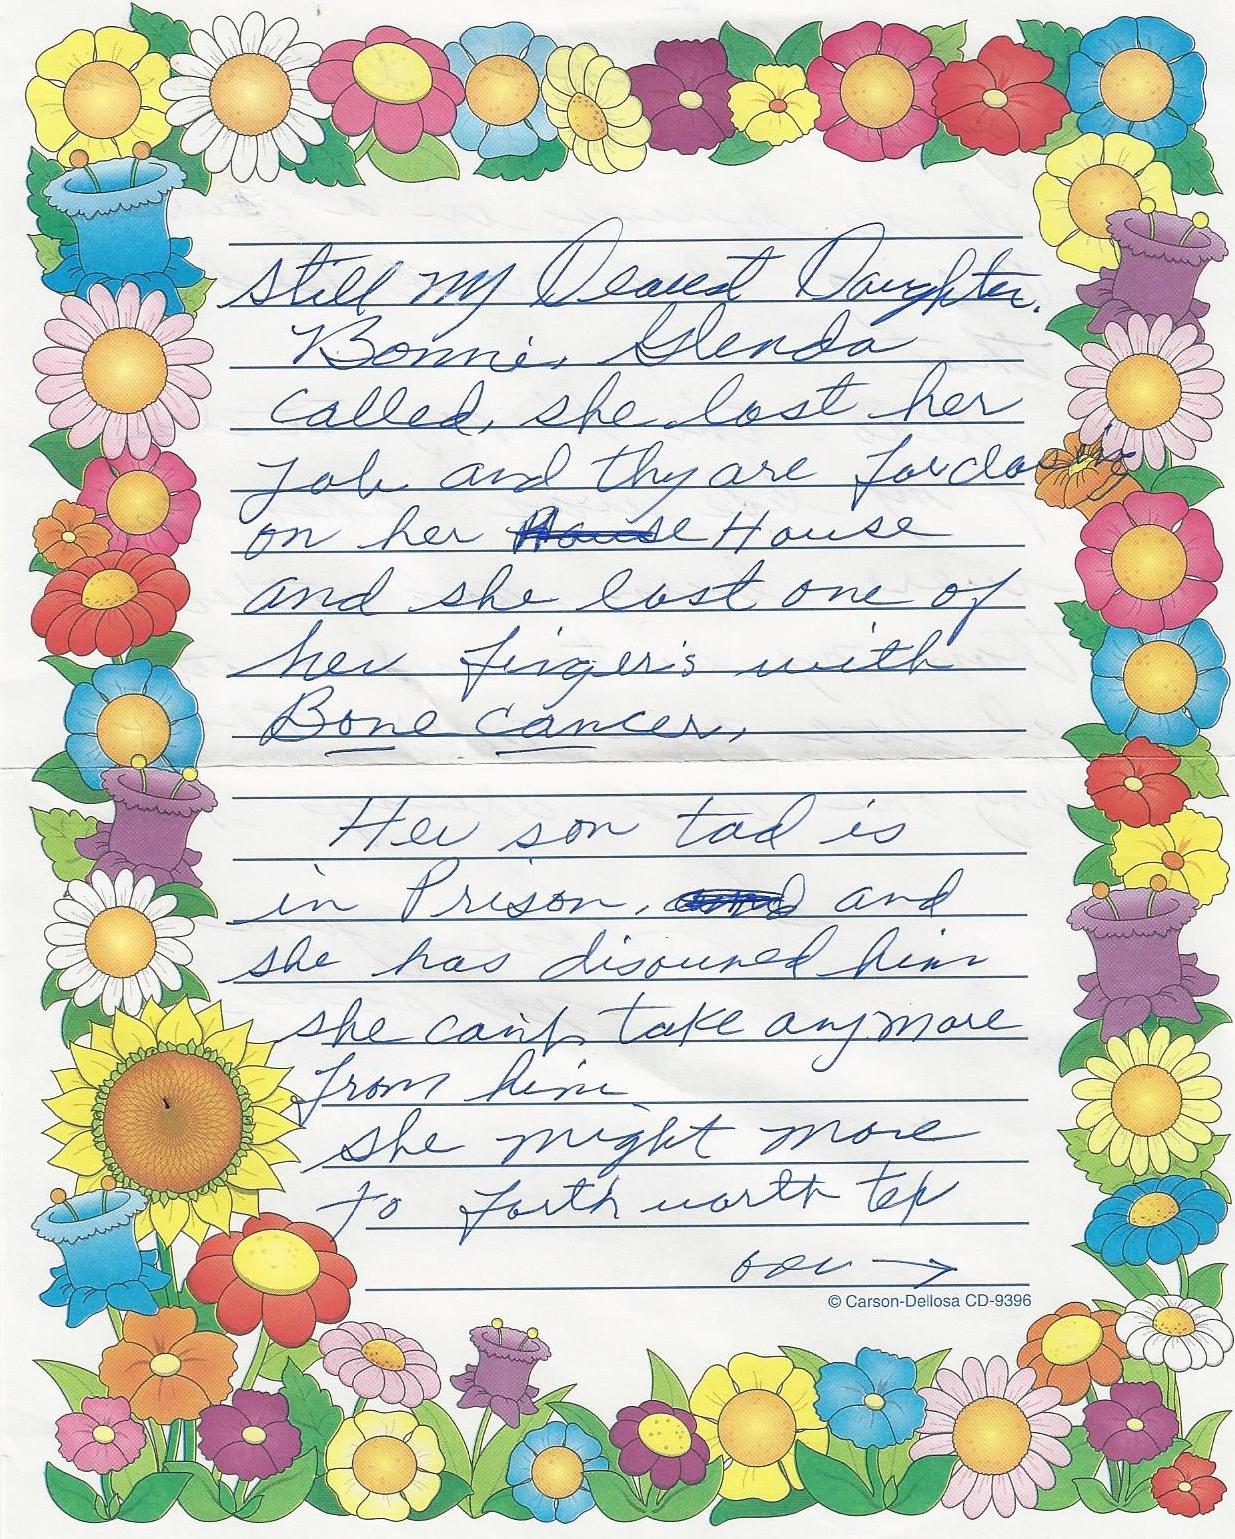 still my Dearest Daughter.
Bonnie, Glenda
called, she lost her
Job and thy are forclosing
on her House House
and she lost one of
her finger's with
Bone cancer,
Her son tad is
in Prison, and and
she has disouned him
she can't take anymore
from him
she might move
to forth worth tex
over →
© Carson-Dellosa CD-9396